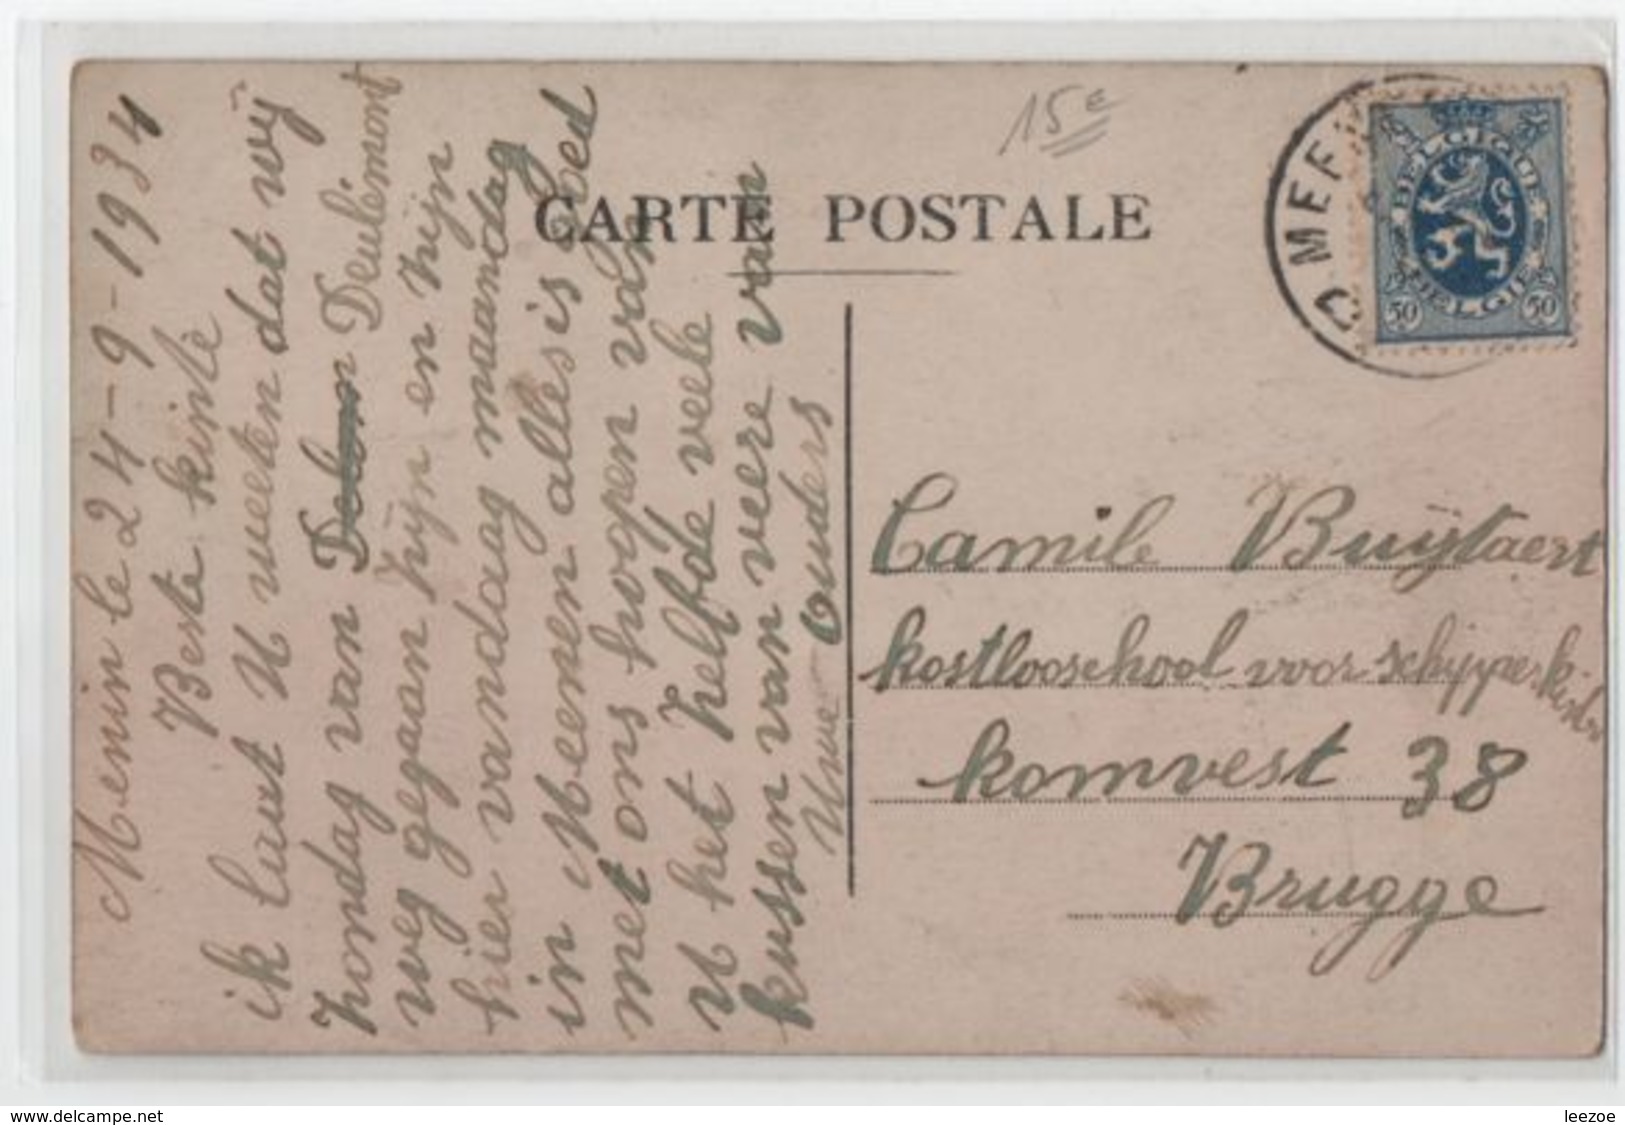 Menin le 24-9-1934
Beste kinte
ik laat U weeten dat wij
zondag van Deulémont
weg gegaan zijn en zijn
hier vandaag maandag
in Meenen alles is goed
met ons hoopen van
U het zelfde veele
kussen van veere van
Uwe ouders
CARTE POSTALE
15e
MEE
BELGIQUE
BELGIE
50 50
Camile Buijtaert
kostlooschool voor schippers kinders
komvest 38
Brugge
www.delcampe.net
leezoe